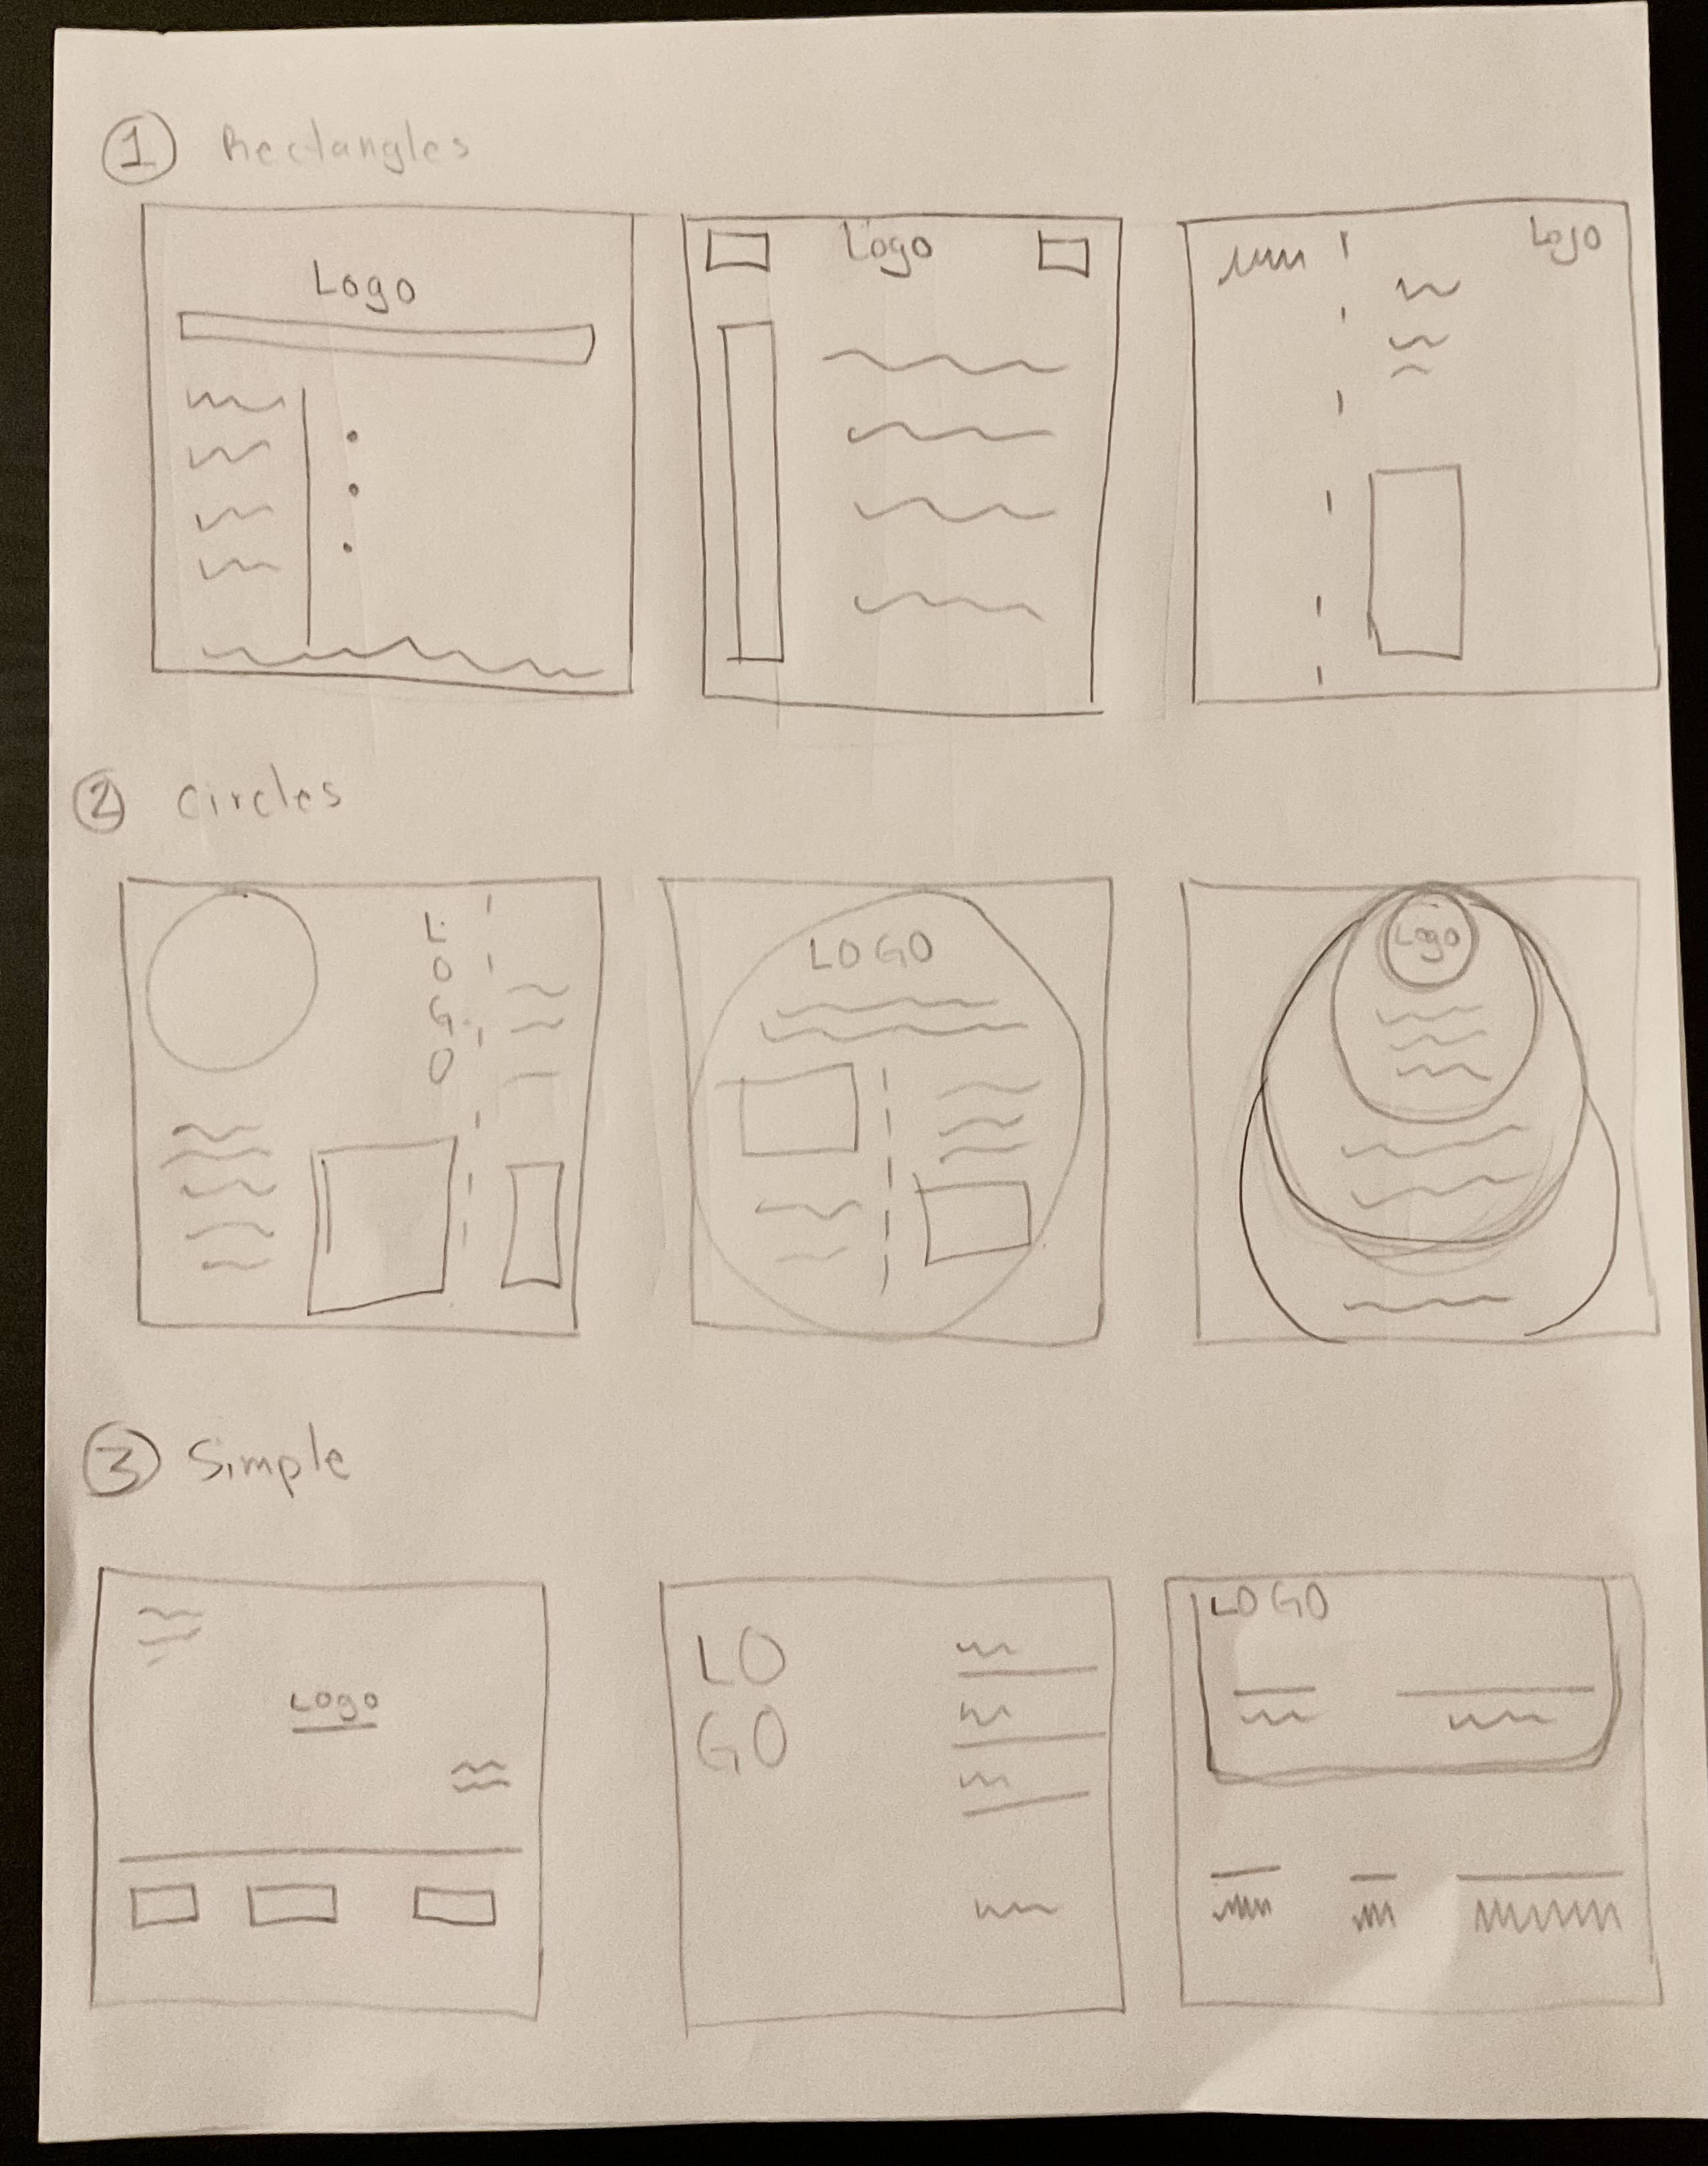 1 Rectangles
Logo
Logo
Logo
2 Circles
L
O
G
O
LOGO
Logo
3 Simple
Logo
LO
GO
LOGO